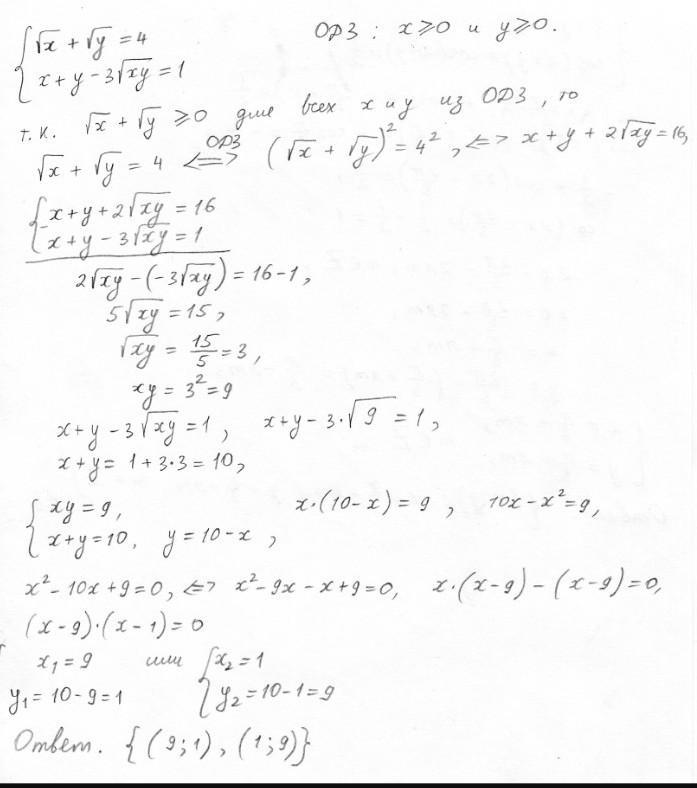 { √x + √y = 4 ОДЗ : x ⩾ 0 и y ⩾ 0.
x + y - 3√xy = 1
т. к. √x + √y ⩾ 0 для всех x и y из ОДЗ, то
√x + √y = 4 ⟺ ОДЗ (√x + √y)² = 4², ⟺ x + y + 2√xy = 16,
{ x + y + 2√xy = 16
- x + y - 3√xy = 1
2√xy - (-3√xy) = 16 - 1,
5√xy = 15,
√xy = 15/5 = 3,
xy = 3² = 9
x + y - 3√xy = 1, x + y - 3·√9 = 1,
x + y = 1 + 3·3 = 10,
{ xy = 9, x·(10 - x) = 9, 10x - x² = 9,
x + y = 10, y = 10 - x,
x² - 10x + 9 = 0, ⟺ x² - 9x - x + 9 = 0, x·(x - 9) - (x - 9) = 0,
(x - 9)·(x - 1) = 0
x₁ = 9 или { x₂ = 1
y₁ = 10 - 9 = 1 y₂ = 10 - 1 = 9
Ответ. {(9; 1), (1; 9)}